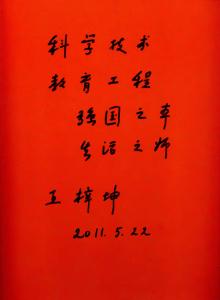 科学技术
教育工程
强国之
生活之师
王梓坤
2011.5.22